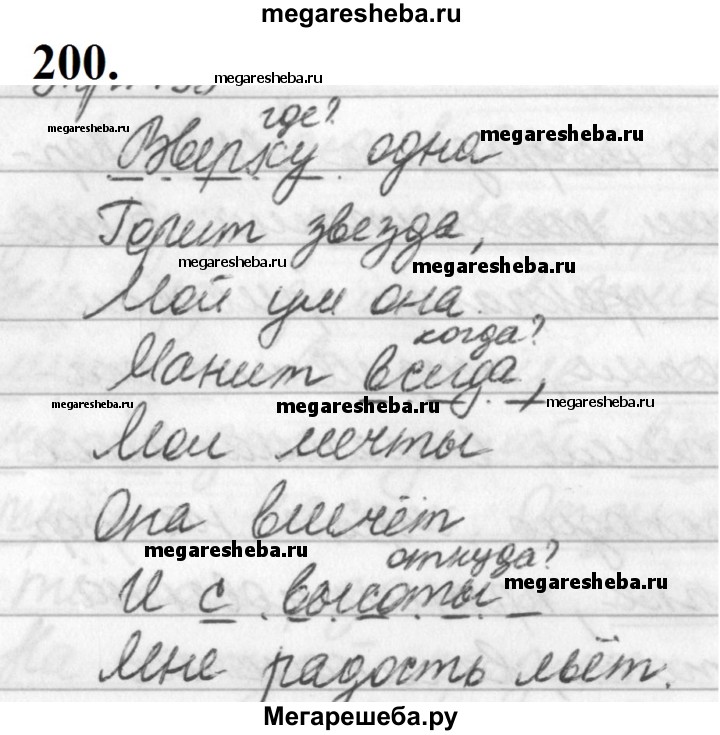 megaresheba.ru
200.
megaresheba.ru
где?
megaresheba.ru
megaresheba.ru
Вверху одна
Горит звезда,
megaresheba.ru
megaresheba.ru
Мой ум она
когда?
Манит всегда,
megaresheba.ru
megaresheba.ru
megaresheba.ru
Мои мечты
Она влечёт
megaresheba.ru
откуда?
megaresheba.ru
И с высоты
Мне радость льёт.
Мегарешеба.ру